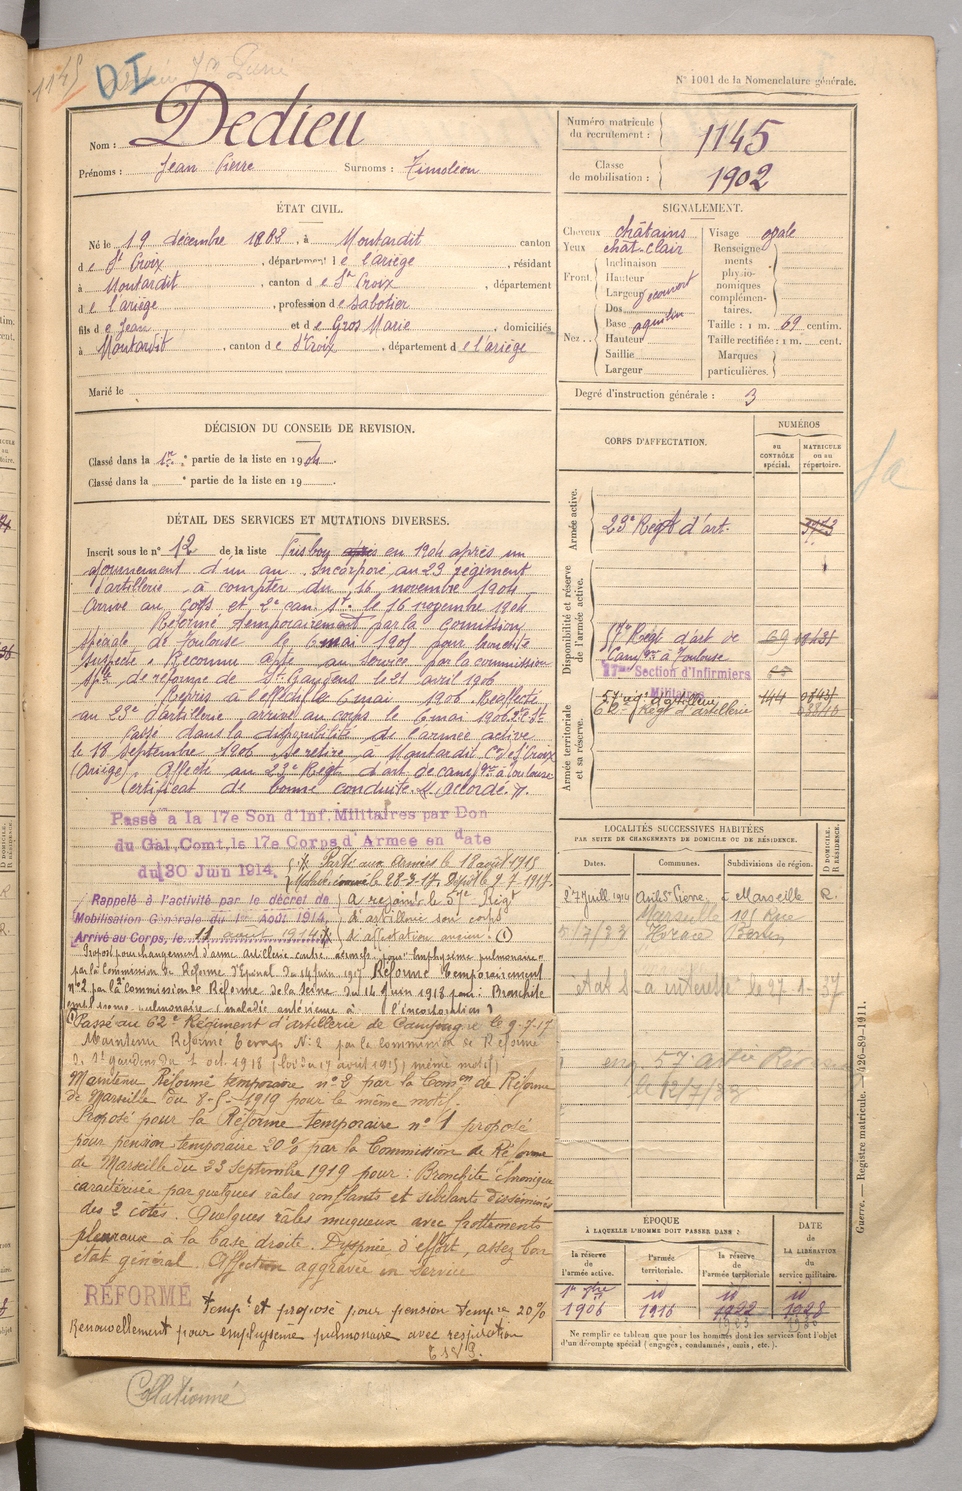 1145
DI
N° 1001 de la Nomenclature générale.
Nom : Dedieu
Prénoms : Jean Pierre Surnoms : Timoléon
Numéro matricule du recrutement : 1145
Classe de mobilisation : 1902
ÉTAT CIVIL.
Né le 19 décembre 1882, à Montardit canton
de St Croix, département de l'ariège, résidant
à Montardit, canton de St Croix, département
de l'ariège, profession de Sabotier
fils de Jean et de Gros Marie, domiciliés
à Montardit, canton de St Croix, département de l'ariège
Marié le
SIGNALEMENT.
Cheveux châtains
Yeux chât-clair
Front. Inclinaison
Hauteur
Largeur
Nez Dos
Base aquilin
Hauteur
Saillie
Largeur
Visage ovale
Renseignements physionomiques complémentaires.
Taille : 1 m. 69 centim.
Taille rectifiée : 1 m. cent.
Marques particulières.
Degré d'instruction générale : 3
DÉCISION DU CONSEIL DE REVISION.
Classé dans la 1re partie de la liste en 1904.
Classé dans la e partie de la liste en 19 .
DÉTAIL DES SERVICES ET MUTATIONS DIVERSES.
Inscrit sous le n° 12 de la liste en 1904 après un
ajournement d'un an. Incorporé au 23 régiment
d'artillerie à compter du 16 novembre 1904
Arrivé au Corps et 2e can. St. le 16 novembre 1904
Réformé temporairement par la comission
spéciale de Toulouse le 6 mai 1905 pour bronchite
suspecte. Reconnu apte au service par la commission
sple de réforme de St Gaudens le 21 avril 1906
Repris à l'effectif le 6 mai 1906. Réaffecté
au 23e d'artillerie, arrivé au corps le 6 mai 1906
Passé dans la disponibilité de l'armée active
le 18 septembre 1906. Se retire à Montardit Con de St Croix
(Ariège). Affecté au 23e Régt d'art. de camp gne à Toulouse
Certificat de bonne conduite "Accordé".
Passé à la 17e Son d'Inf. Militaires par Don
du Gal. Comt. le 17e Corps d'Armée en date
du 30 Juin 1914.
Parti aux Armées le 18 août 1915
le 28-3-17, Dépôt le 9-7-1917.
Rappelé à l'activité par le décret de
Mobilisation Générale du 1er Août 1914,
Arrivé au Corps, le 11 août 1914
A rejoint le 57e Régt
d'artillerie son corps
d'affectation ancien. (1)
Proposé pour changement d'arme artillerie contre pour "Emphysème pulmonaire"
par la Commission de Réforme d'Epinal du 14 juin 1917 Réformé Temporairement
n°2 par la 2e Commission de Réforme de la Seine du 14 juin 1918 pour : Bronchite
emphysème pulmonaire (maladie antérieure à l'incorporation)
(1) Passé au 62e Régiment d'artillerie de Campagne le 9-7-17
Maintenu Réformé temp N° 2 par la commission de Réforme
de St gaudens du 1 oct. 1918 (Loi du 17 avril 1915) même motif)
Maintenu Réformé temporaire n° 2 par la Comon de Réforme
de Marseille du 8-5-1919 pour le même motif.
Proposé pour la Réforme temporaire n° 1 proposé
pour pension temporaire 20% par la Commission de Réforme
de Marseille du 23 Septembre 1919 pour : Bronchite chronique
caractérisée par quelques râles ronflants et sibilants disséminés
des 2 côtés. Quelques râles muqueux avec frottements
pleuraux à la base droite. Dyspnée d'effort, assez bon
état général. Affection aggravée en service
RÉFORMÉ tempre et proposé pour pension tempre 20%
Renouvellement pour emphysème pulmonaire avec respiration
Collationné
CORPS D'AFFECTATION.
NUMÉROS
au CONTRÔLE spécial.
MATRICULE ou au répertoire.
Armée active.
23e Régt d'art.
Disponibilité et réserve de l'armée active.
57e Régt d'art de
Campgne à Toulouse 69
17me Section d'Infirmiers
Militaires
Armée territoriale et sa réserve.
57 régt d'artillerie 144
Régt d'artillerie
LOCALITÉS SUCCESSIVES HABITÉES
PAR SUITE DE CHANGEMENTS DE DOMICILE OU DE RÉSIDENCE.
Dates. Communes. Subdivisions de région. D DOMICILE. R RÉSIDENCE.
27 Juill 1914 Marseille R.
Marseille 125 Rue
5/7/23 Horace Bertin
à intéressé le 27-1-37
ÉPOQUE
À LAQUELLE L'HOMME DOIT PASSER DANS :
la réserve de l'armée active.
l'armée territoriale.
la réserve de l'armée territoriale
DATE DE LA LIBÉRATION du service militaire.
1er 8bre id id id
1906 1916 1922 1928
Ne remplir ce tableau que pour les hommes dont les services font l'objet
d'un décompte spécial (engagés, condamnés, omis, etc.).
Guerre. — Registre matricule. — 426-89-1911.